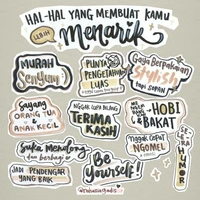 HAL-HAL YANG MEMBUAT KAMU
LEBIH
Menarik
MURAH
Senyum
PUNYA
PENGETAHUAN
LUAS
Gaya Berpakaian
Stylish
tapi SOPAN
Sayang
ORANG TUA &
ANAK KECIL
NGGAK LUPA BILANG
TERIMA
KASIH
HOBI
& BAKAT
Suka Menolong
dan berbagi
Nggak Cepat
NGOMEL
SELERA HUMOR
JADI PENDENGAR
YANG BAIK
Be
Yourself!